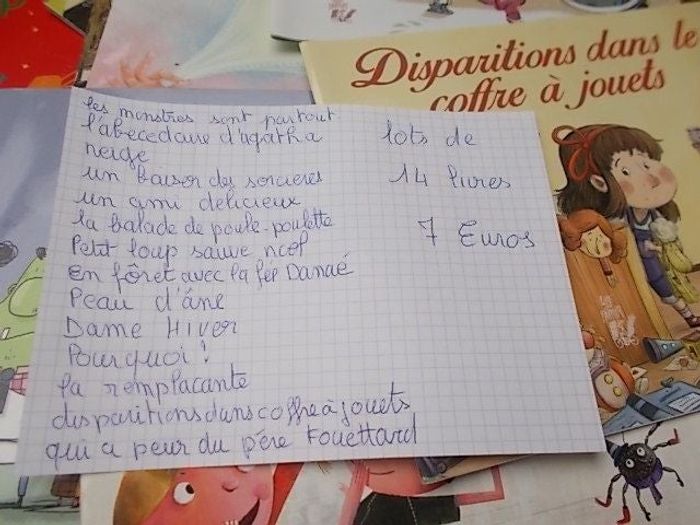 Disparitions dans le
coffre à jouets
les monstres sont partout
l'abecedaire d'agatha
neige
un baiser des sorcieres
un ami delicieux
la balade de poule-poulette
Petit loup sauve noel
En fôret avec la fée Danaé
Peau d'âne
Dame HIVER
Pourquoi!
la remplacante
disparitions dans coffre à jouets
qui a peur du père Fouettard
lots de
14 livres
7 Euros